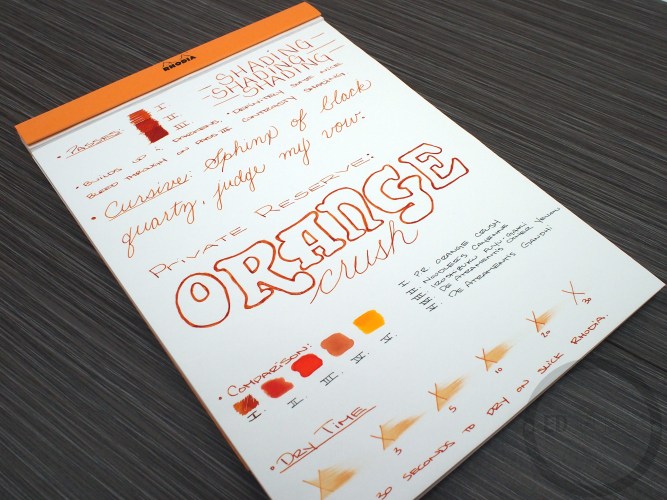 RHODIA
SHADING
SHADING
SHADING
• PASSES:
I
II
III
• BUILDS UP & DARKENS. DEFINITELY SOME NICE
BLEED THROUGH ON PASS III CONTRASTY SHADING
• Cursive: Sphinx of black
quartz, judge my vow.
PRIVATE RESERVE:
ORANGE
crush
I. PR ORANGE CRUSH
II. NOODLER'S CAYENNE
III. IROSHIZUKU FUYU-GAKI
IV. DE ATRAMENTIS OMER YENIAN
V. DE ATRAMENTIS GANDHI
• COMPARISON:
I. II. III. IV. V.
• DRY TIME
X X X X X X
3 5 10 20 30
30 SECONDS TO DRY ON SLICK RHODIA.
ED